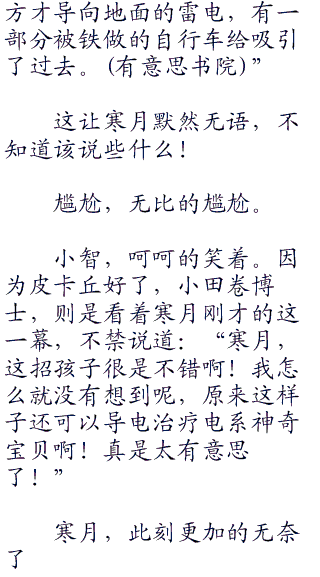 方才导向地面的雷电，有一
部分被铁做的自行车给吸引
了过去。(有意思书院)”
这让寒月默然无语，不
知道该说些什么！
尴尬，无比的尴尬。
小智，呵呵的笑着。因
为皮卡丘好了，小田卷博
士，则是看着寒月刚才的这
一幕，不禁说道：“寒月，
这招孩子很是不错啊！我怎
么就没有想到呢，原来这样
子还可以导电治疗电系神奇
宝贝啊！真是太有意思
了！”
寒月，此刻更加的无奈
了